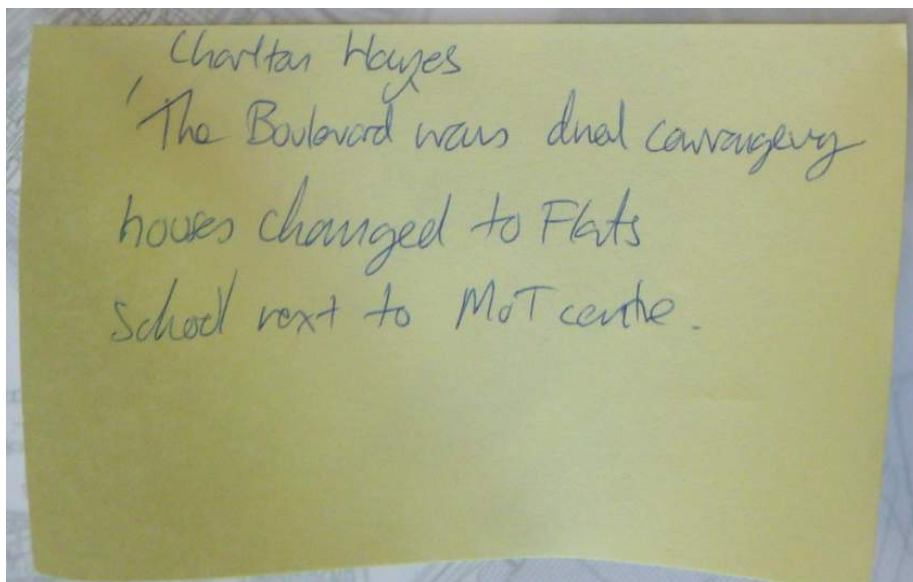 Charlton Hayes
The Boulevard was dual carrangewy
houses changed to Flats
school next to MoT centre.